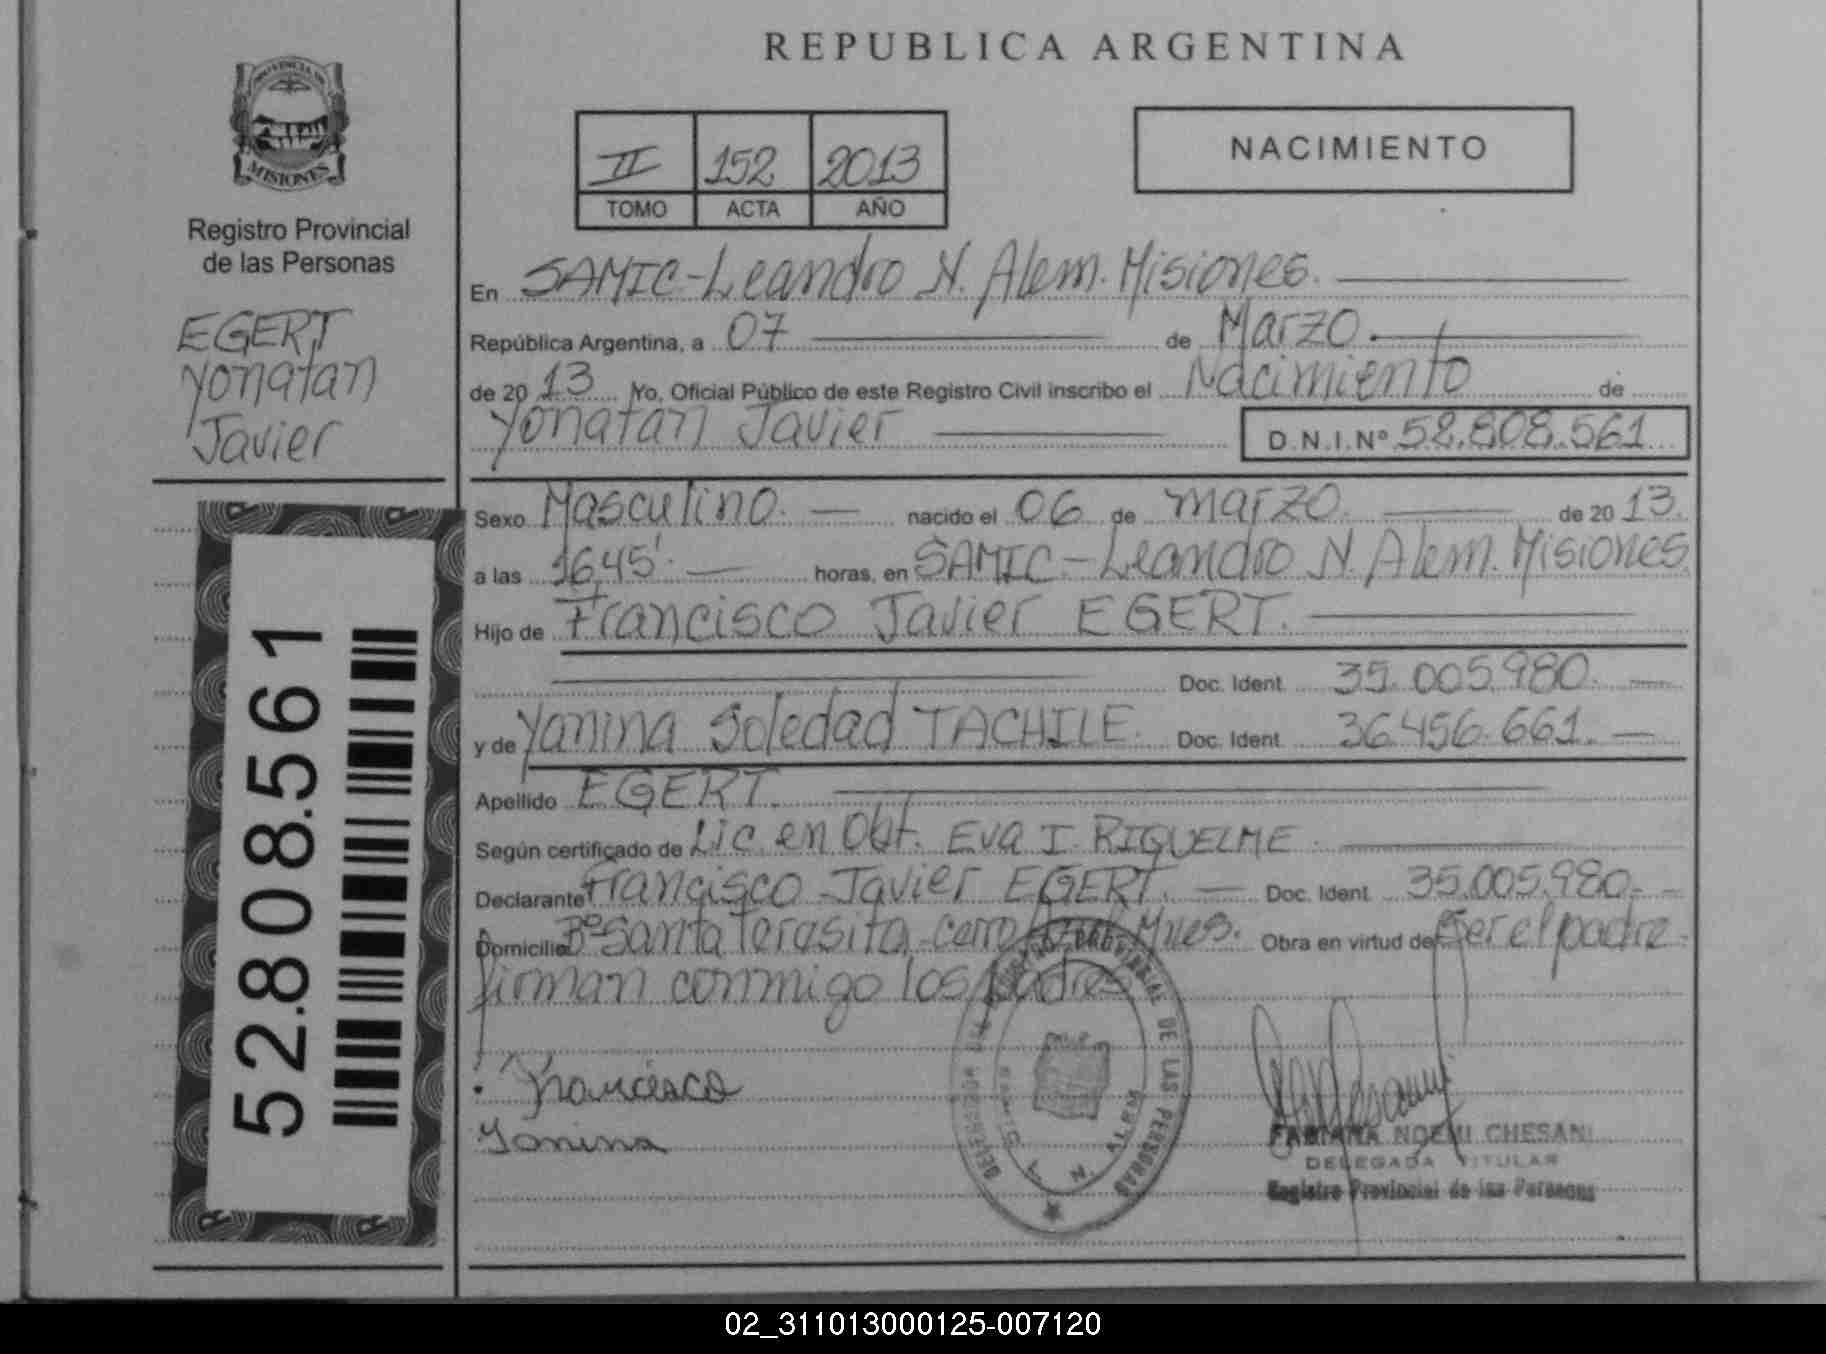 REPUBLICA ARGENTINA
PROVINCIA DE
MISIONES
Registro Provincial
de las Personas
EGERT
Yonatan
Javier
II 152 2013
TOMO ACTA AÑO
NACIMIENTO
En SAMIC-Leandro N. Alem. Misiones.
República Argentina, a 07 de Marzo.
de 20 13 Yo, Oficial Público de este Registro Civil inscribo el Nacimiento de
Yonatan Javier D.N.I.Nº 52.808.561
Sexo Masculino. nacido el 06 de marzo. de 20 13.
a las 16,45'. horas, en SAMIC-Leandro N. Alem. Misiones.
Hijo de Francisco Javier EGERT.
Doc. Ident. 35.005.980.
y de Yanina Soledad TACHILE. Doc. Ident. 36.456.661.
Apellido EGERT.
Según certificado de Lic. en Obt. Eva I. RIQUELME.
Declarante Francisco Javier EGERT. Doc. Ident. 35.005.980.
Domicilio Bº Santa Terasita, Cerro Mnes. Obra en virtud de Ser el padre.
firman conmigo los padres
Francisco
Yanina
52.808.561
REGISTRO PROVINCIAL DE LAS PERSONAS
L. N. ALEM
FABIANA NOEMI CHESANI
DELEGADA TITULAR
Registro Provincial de las Personas
02_311013000125-007120